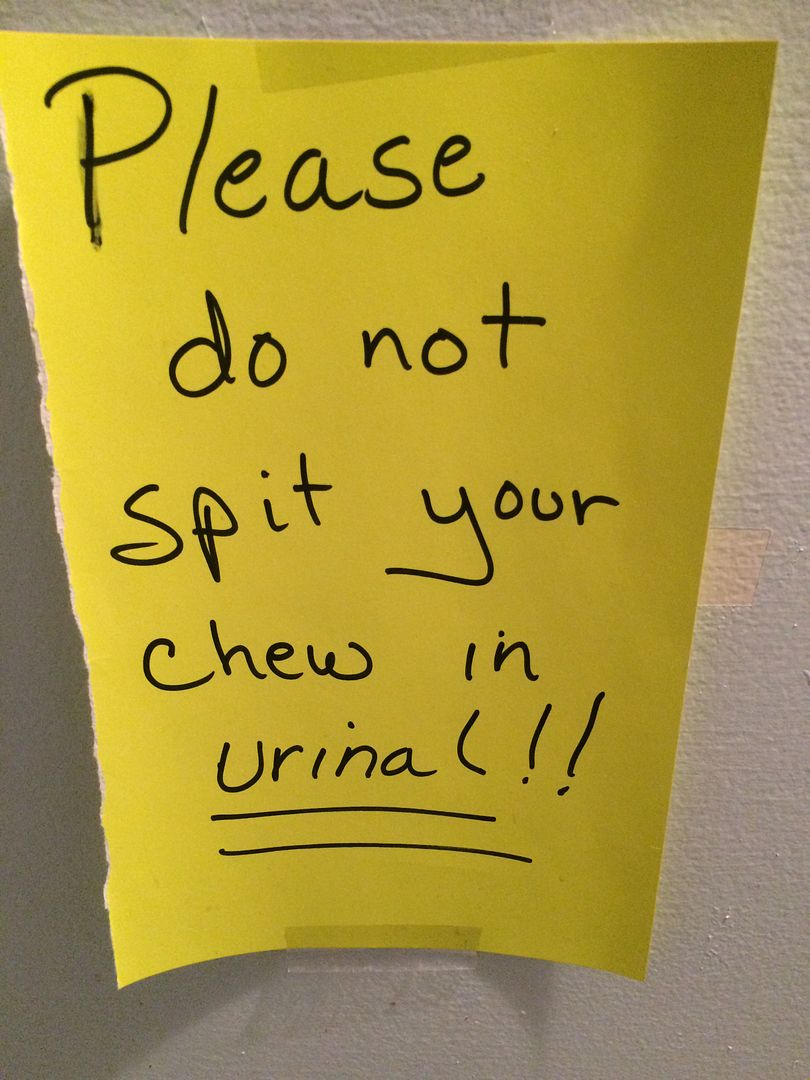 Please
do not
spit your
chew in
urinal!!